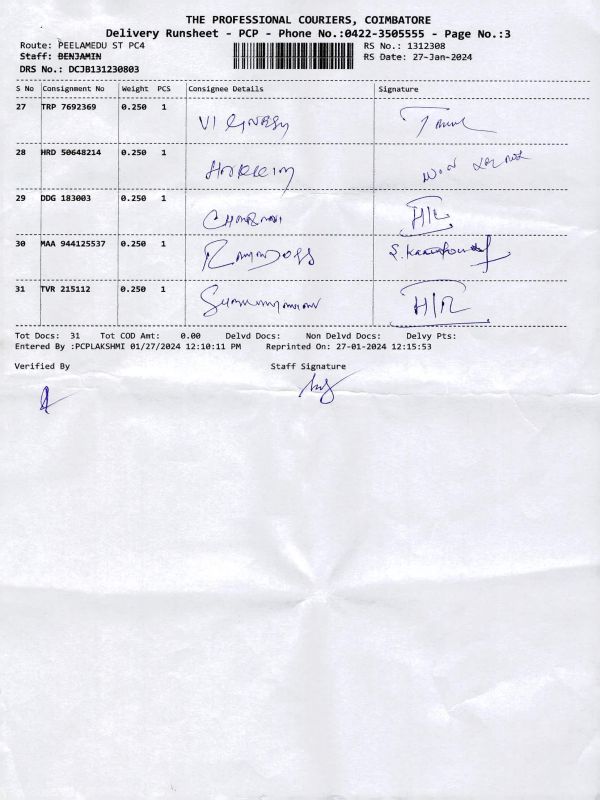 THE PROFESSIONAL COURIERS, COIMBATORE
Delivery Runsheet - PCP - Phone No.:0422-3505555 - Page No.:3
Route: PEELAMEDU ST PC4
RS No.: 1312308
Staff: BENJAMIN
RS Date: 27-Jan-2024
DRS No.: DCJB131230803
S No Consignment No Weight PCS Consignee Details Signature
27 TRP 7692369 0.250 1
28 HRD 50648214 0.250 1
29 DDG 183003 0.250 1 H/R
30 MAA 944125537 0.250 1 RAMADOSS
31 TVR 215112 0.250 1 H/R
Tot Docs: 31 Tot COD Amt: 0.00 Delvd Docs: Non Delvd Docs: Delvy Pts:
Entered By :PCPLAKSHMI 01/27/2024 12:10:11 PM Reprinted On: 27-01-2024 12:15:53
Verified By Staff Signature